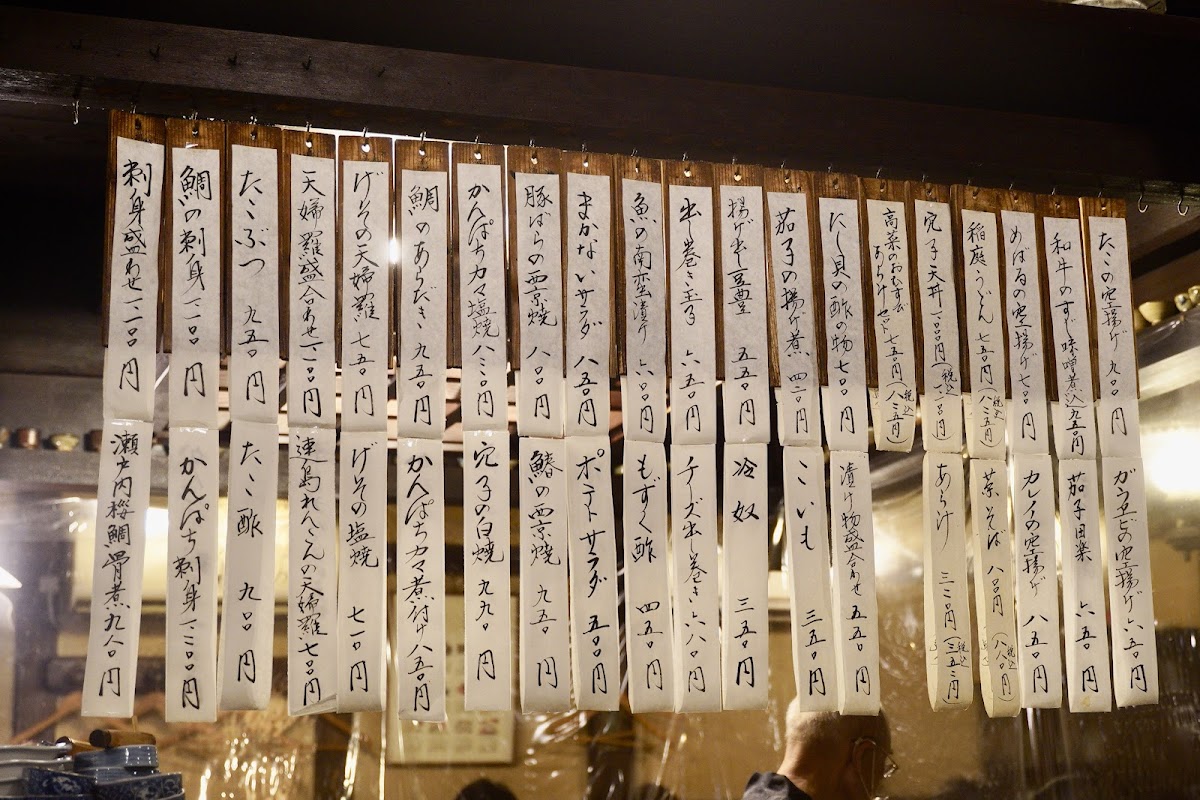 たこの空揚げ 九〇〇円
ガラエビの空揚げ 六五〇円
和牛のすじ味噌煮込 九五〇円
茄子田楽 六五〇円
めばるの空揚げ 七〇〇円
カレイの空揚げ 八五〇円
稲庭うどん 七五〇円(税込八二五円)
茶そば 八〇〇円(税込八八〇円)
穴子天丼
あらけ 三二〇円(税込三五二円)
高菜のおむすび
あらけセット 七五〇円(税込八二五円)
にし貝の酢の物 七〇〇円
漬け物盛合わせ 五五〇円
茄子の揚げ煮 四二〇円
こいも 三五〇円
揚げ出し豆豊 五五〇円
冷奴 三五〇円
出し巻き玉子 六五〇円
チーズ出し巻き 六八〇円
魚の南蛮漬け 六〇〇円
もずく酢 四五〇円
まかないサラダ 八五〇円
ポテトサラダ 五〇〇円
豚ばらの西京焼 八〇〇円
鰆の西京焼 九五〇円
かんぱちカマ塩焼 八二〇円
穴子の白焼 九九〇円
鯛のあらだき 九五〇円
かんぱちカマ煮付け 八五〇円
げその天婦羅 七五〇円
げその塩焼 七一〇円
天婦羅盛合わせ 一二〇〇円
連島れんこんの天婦羅 七〇〇円
たこぶつ 九五〇円
たこ酢 九〇〇円
鯛の刺身 一二〇〇円
かんぱち刺身 一二〇〇円
刺身盛わせ 二二〇〇円
瀬戸内桜鯛骨煮 九八〇円